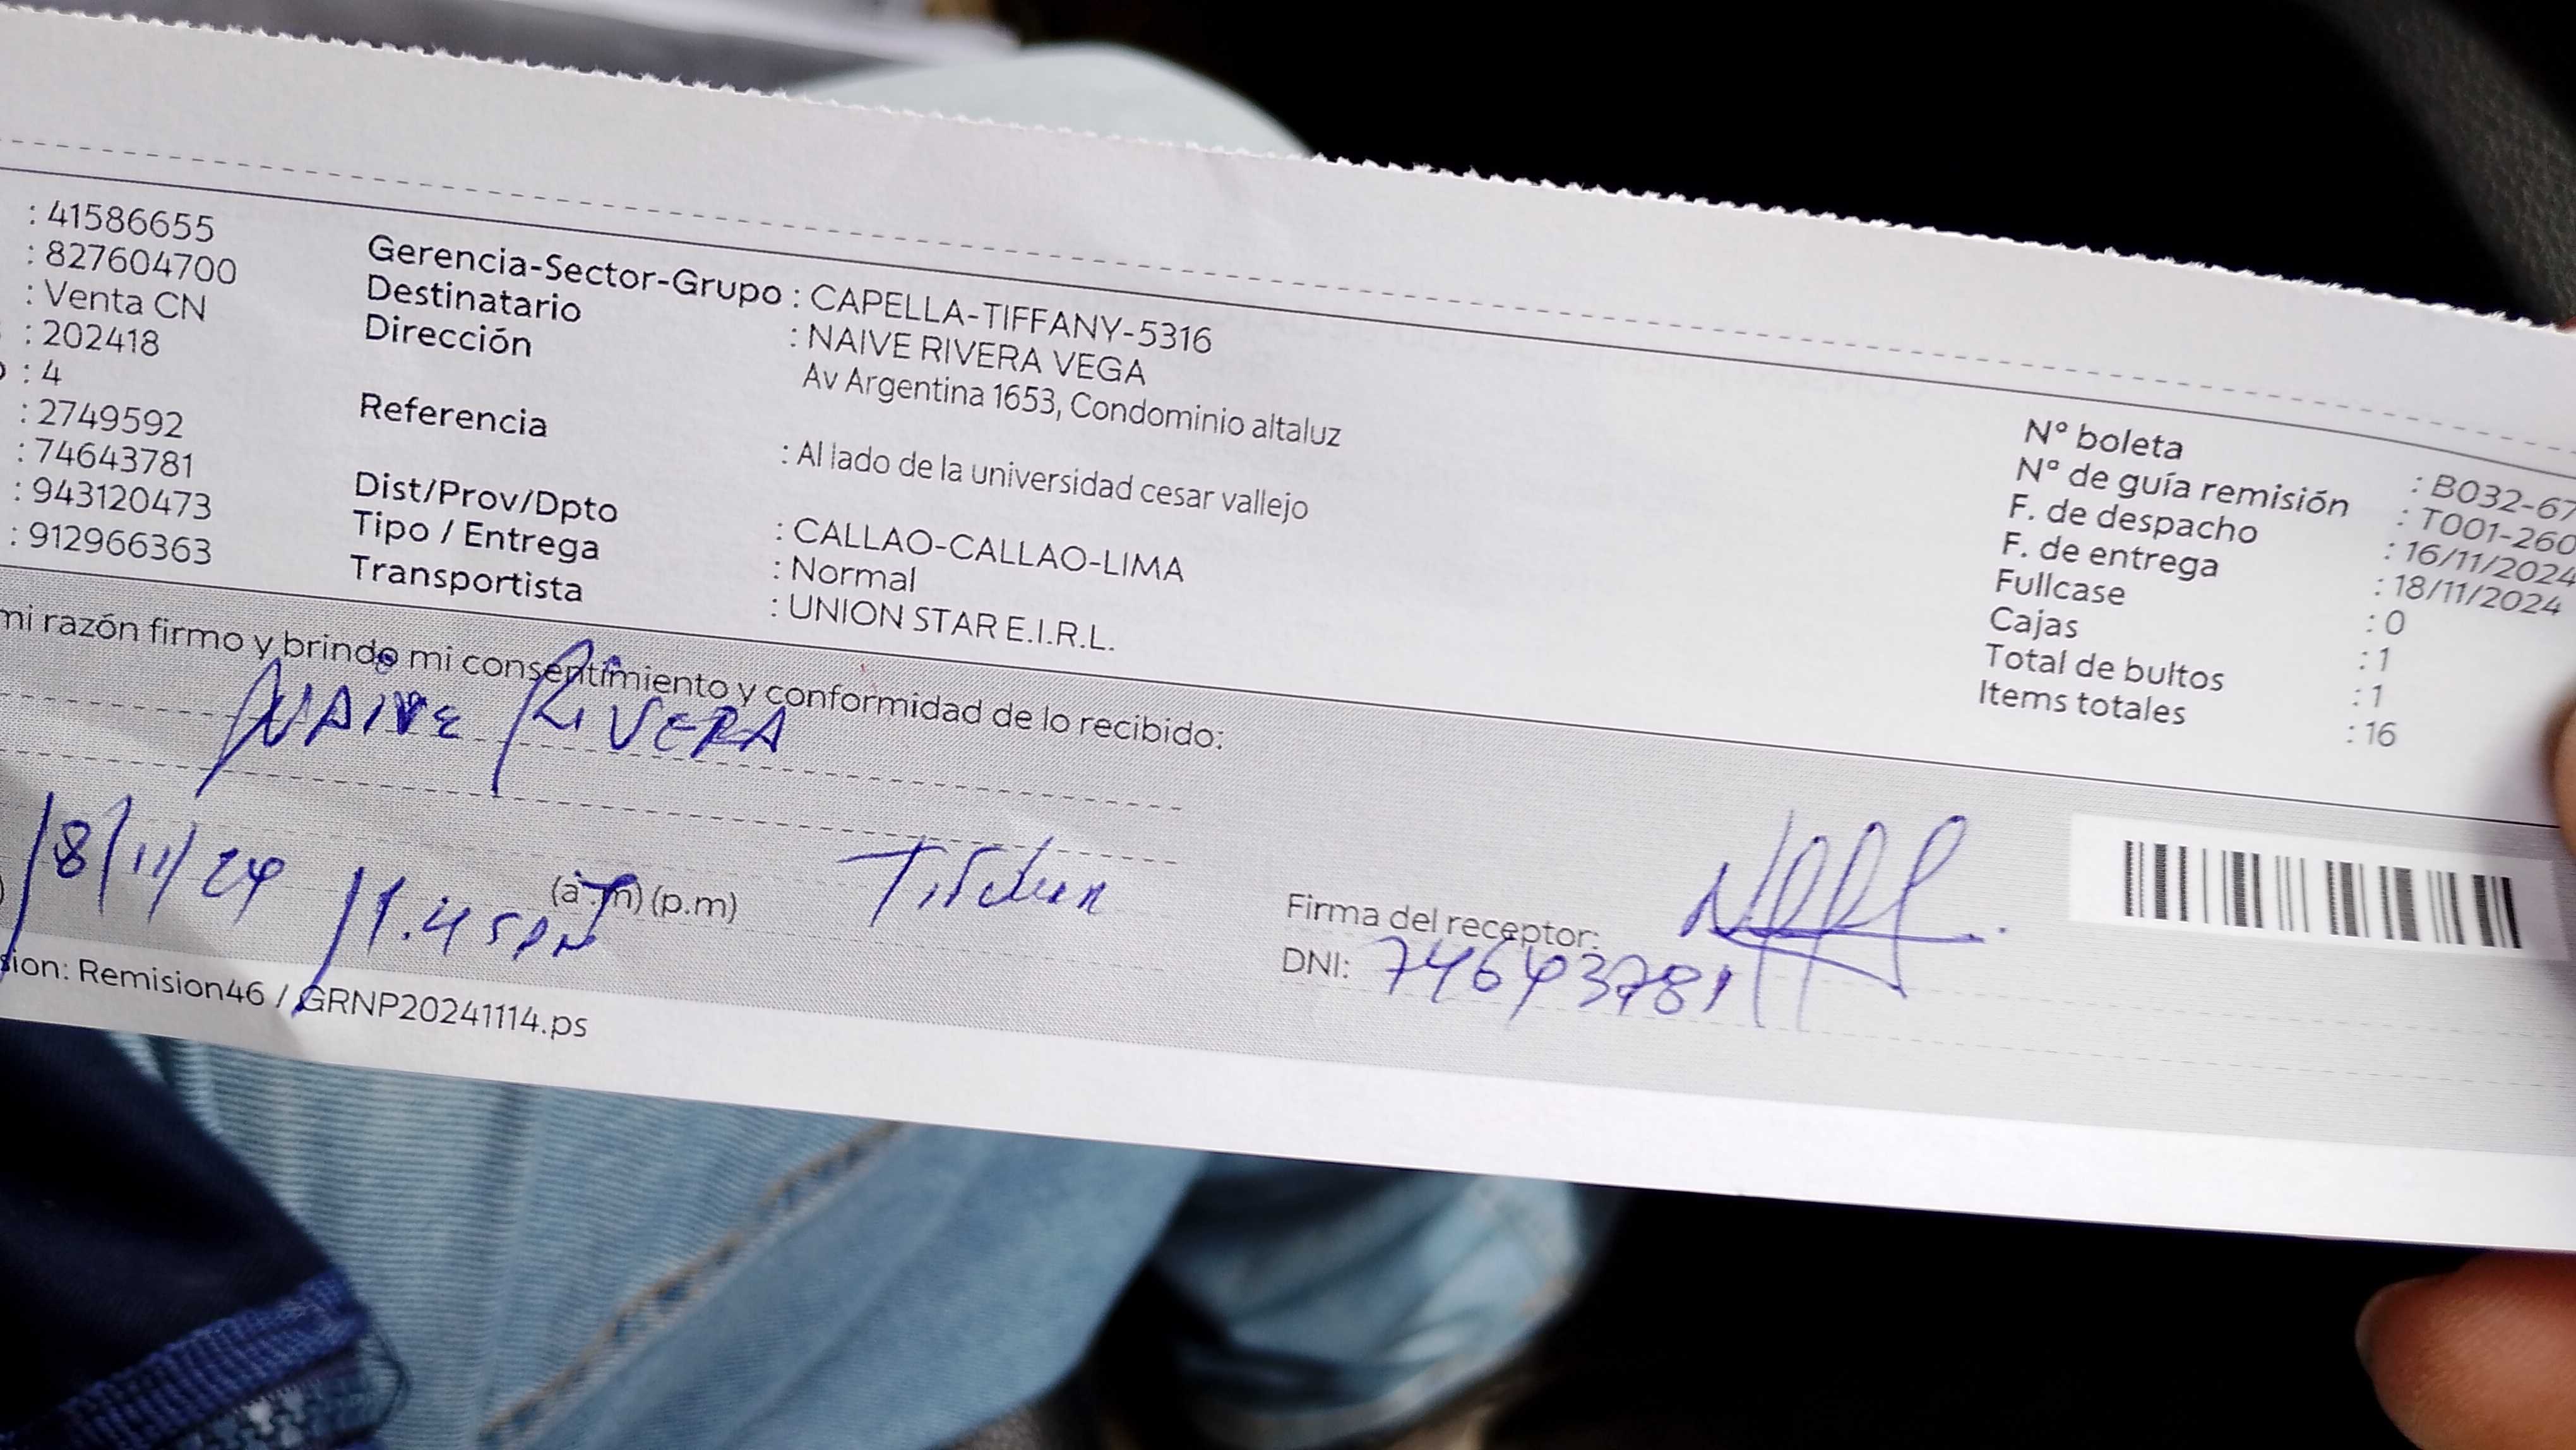 : 41586655
: 827604700
: Venta CN
: 202418
: 4
: 2749592
: 74643781
: 943120473
: 912966363
Gerencia-Sector-Grupo : CAPELLA-TIFFANY-5316
Destinatario : NAIVE RIVERA VEGA
Dirección Av Argentina 1653, Condominio altaluz
Referencia : Al lado de la universidad cesar vallejo
Dist/Prov/Dpto : CALLAO-CALLAO-LIMA
Tipo / Entrega : Normal
Transportista : UNION STAR E.I.R.L.
N° boleta : B032-67
N° de guía remisión : T001-260
F. de despacho : 16/11/2024
F. de entrega : 18/11/2024
Fullcase : 0
Cajas : 1
Total de bultos : 1
Items totales : 16
mi razón firmo y brindo mi consentimiento y conformidad de lo recibido:
NAIVE RIVERA
18/11/24 11.45 (a.m) (p.m)
Firma del receptor:
DNI: 74643781
sion: Remision46 / GRNP20241114.ps